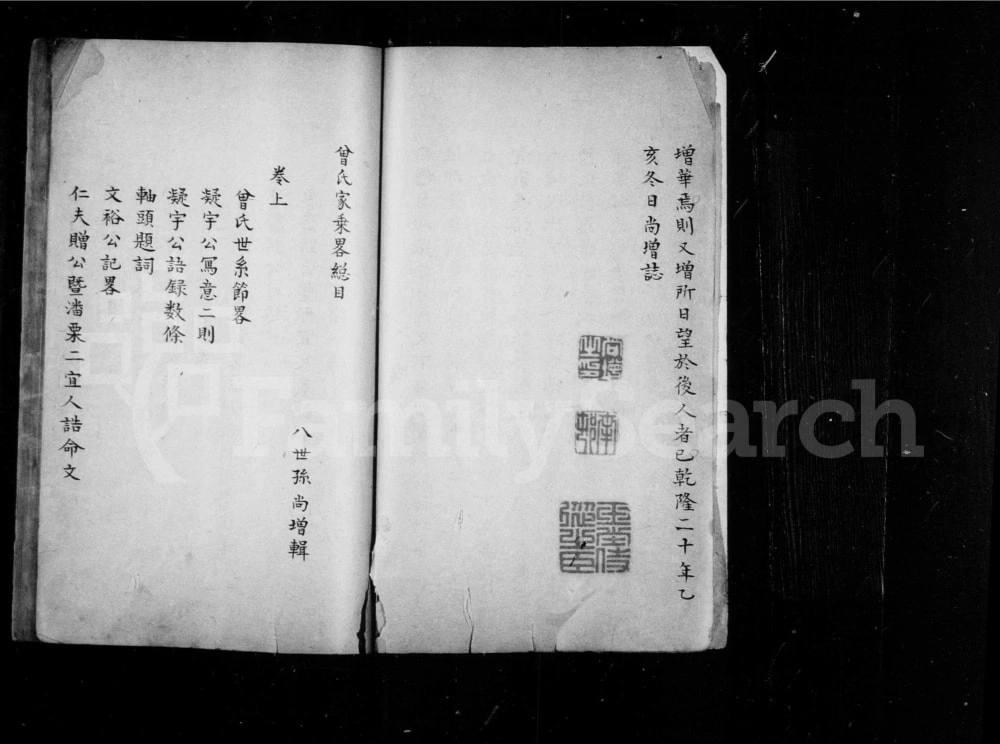 增華焉則又增所日望於後人者已乾隆二十年乙
亥冬日尚增誌
曾氏家乗畧總目
八世孫尚增輯
卷上
曾氏世系節畧
凝宇公寫意二則
凝宇公語録数條
軸頭題詞
文裕公記畧
仁夫贈公暨潘栗二宜人誥命文
FamilySearch